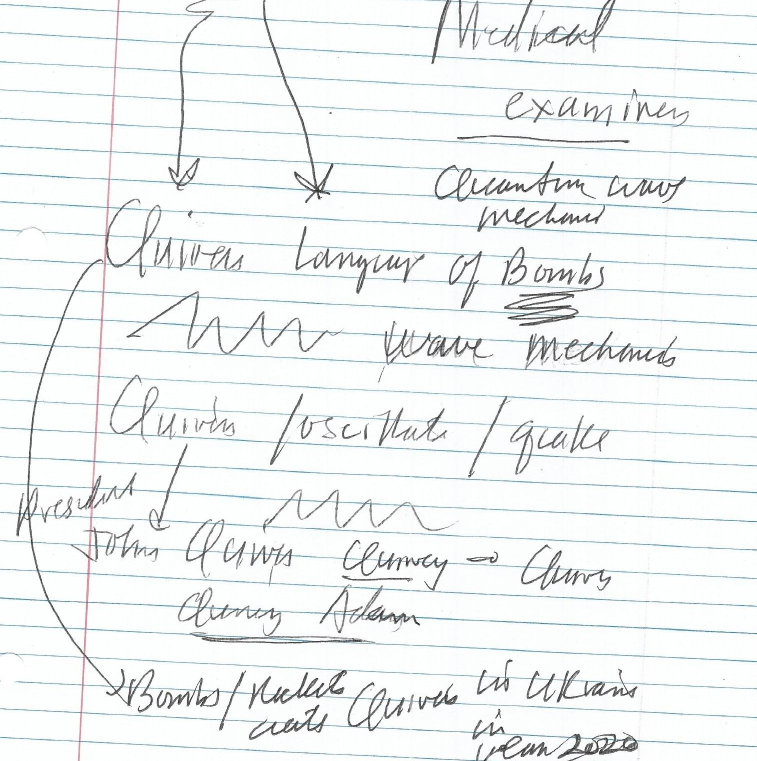 Medical
examiners
Quantum wave
mechanics
Quivers Language of Bombs
wave mechanics
Quivers / oscillate / quake
President
John Quincy Quincy → Quivers
Quincy Adam
Bombs / Rockets Quivers in Ukraine
create in
year 2020